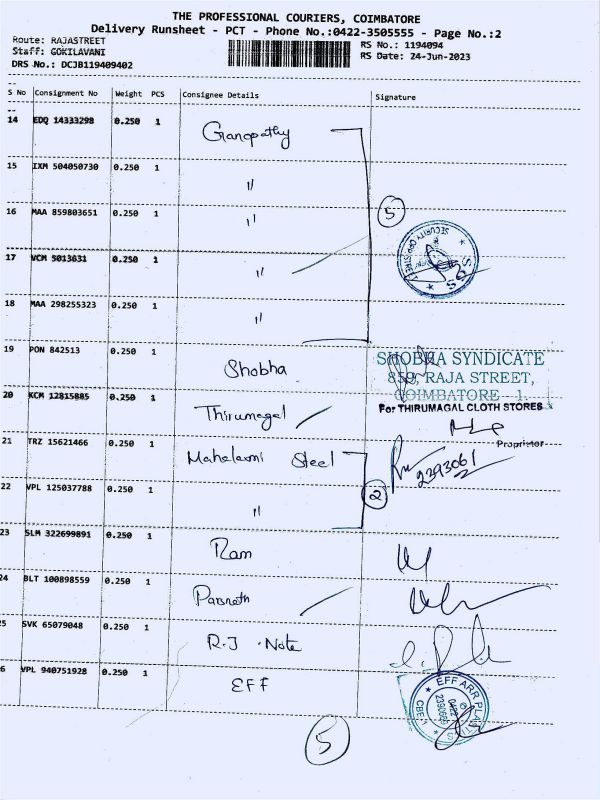 THE PROFESSIONAL COURIERS, COIMBATORE
Delivery Runsheet - PCT - Phone No.:0422-3505555 - Page No.:2
Route: RAJASTREET
Staff: GOKILAVANI
DRS No.: DCJB119409402
RS No.: 1194094
RS Date: 24-Jun-2023
S No Consignment No Weight PCS Consignee Details Signature
14 EDQ 14333298 0.250 1 Ganopathy
15 IXM 504050730 0.250 1 "
16 MAA 859803651 0.250 1 "
5
17 VCM 5013031 0.250 1 "
18 MAA 298255323 0.250 1 "
19 PON 842513 0.250 1 Shobha
SHOBHA SYNDICATE
859, RAJA STREET,
COIMBATORE - 1.
20 KCM 12815885 0.250 1 Thirumagal
For THIRUMAGAL CLOTH STORES
Proprietor
21 TRZ 15621466 0.250 1 Mahalaxmi Steel
2393061
22 VPL 125037788 0.250 1 "
2
23 SLM 322699891 0.250 1 Ram
24 BLT 100898559 0.250 1 Parsnath
5 SVK 65079048 0.250 1 R.J. Note
6 VPL 940751928 0.250 1 EFF
EFF ARR PLASTICS
0422
2390669
CBE-1
5